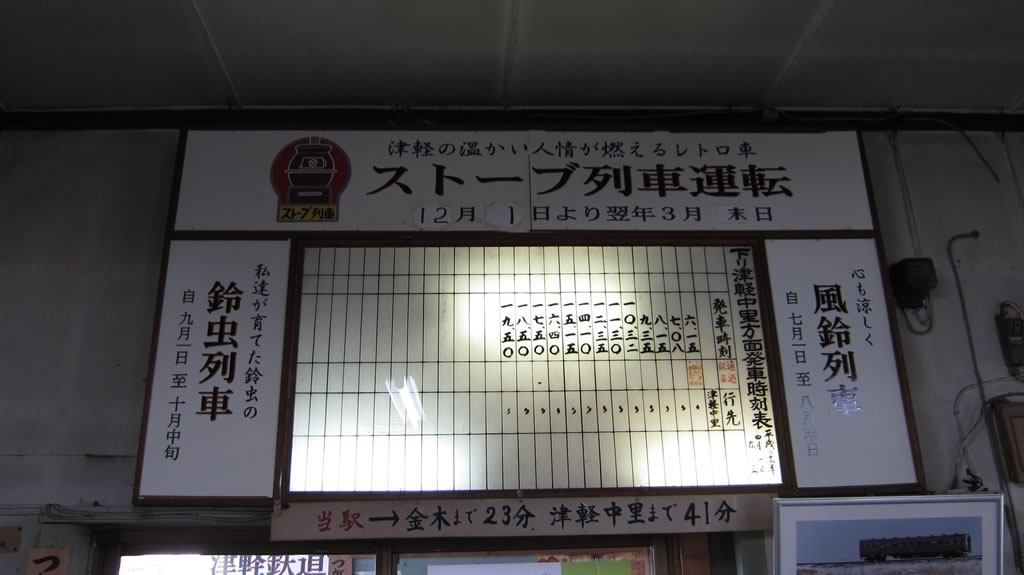 津軽の温かい人情が燃えるレトロ車
ストーブ列車運転
12月 1日より翌年3月 末日
ストーブ列車
心も涼しく
風鈴列車
自 七月一日 至 八月末日
下り津軽中里方面発車時刻表
発車時刻
行先
津軽中里
六.一五
七.〇八
八.一五
九.三五
一〇.三二
一一.三〇
一二.三五
一四.一〇
一五.一五
一六.四〇
一七.五〇
一八.五〇
一九.五〇
私達が育てた鈴虫の
鈴虫列車
自 九月一日 至 十月中旬
当駅→金木まで23分 津軽中里まで41分
津軽鉄道